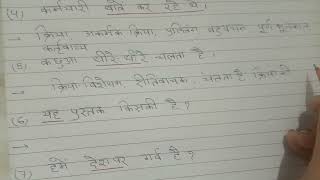 (4) कर्मचारी बातें कर रहे थे।
→ क्रिया, अकर्मक क्रिया, पुल्लिंग बहुवचन पूर्ण भूतकाल
कर्तृवाच्य
(5) कछुआ धीरे धीरे चलता है।
→ क्रिया विशेषण रीतिवाचक, चलता है क्रिया की
(6) यह पुस्तक किसकी है?
→
(7) हमें देश पर गर्व है?